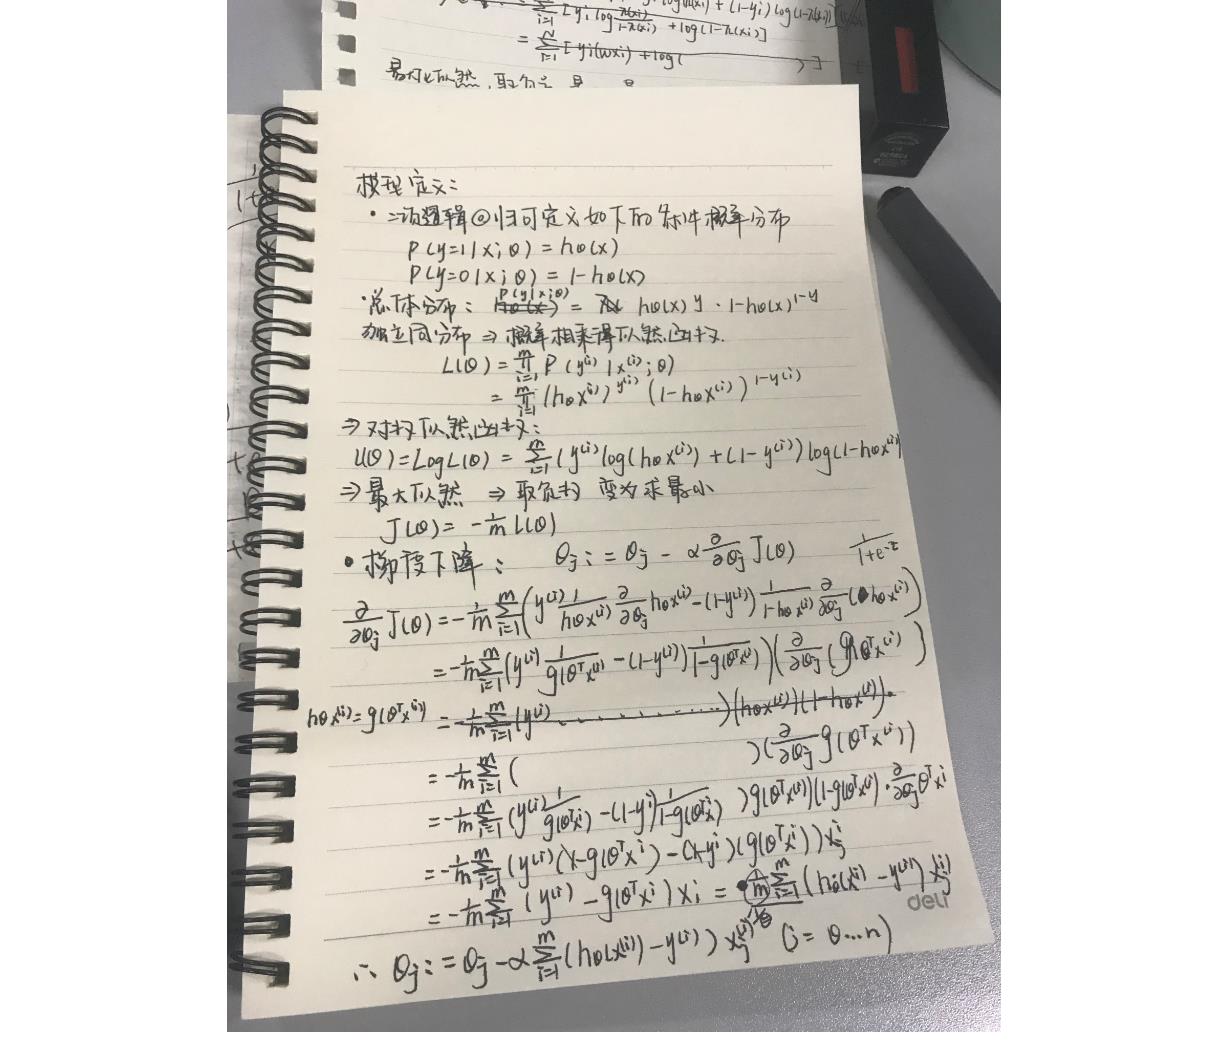 = Σ_{i=1}^{N} [y_i log π(x_i)/(1-π(x_i)) + log(1-π(x_i))]
= Σ_{i=1}^{N} [y_i(wx_i) + log( )]
模型定义:
· 二项逻辑回归可定义如下的条件概率分布
P(y=1|x;θ) = hθ(x)
P(y=0|x;θ) = 1-hθ(x)
·总体分布: P(y|x;θ) = hθ(x)^y · 1-hθ(x)^{1-y}
独立同分布 ⇒ 概率相乘得似然函数.
L(θ) = Π_{i=1}^{m} P(y^{(i)}|x^{(i)};θ)
= Π_{i=1}^{m} (hθx^{(i)})^{y^{(i)}} (1-hθx^{(i)})^{1-y^{(i)}}
⇒ 对数似然函数:
l(θ)=LogL(θ) = Σ_{i=1}^{m} (y^{(i)} log(hθx^{(i)}) + (1-y^{(i)}) log(1-hθx^{(i)})
⇒ 最大似然 ⇒ 取负数 变为求最小
J(θ) = -1/m l(θ)
• 梯度下降: θj := θj - α ∂/∂θj J(θ) 1/(1+e^{-z})
∂/∂θj J(θ) = -1/m Σ_{i=1}^{m} (y^{(i)} 1/hθx^{(i)} ∂/∂θj hθx^{(i)} - (1-y^{(i)}) 1/(1-hθx^{(i)}) ∂/∂θj (hθx^{(i)})
= -1/m Σ_{i=1}^{m} (y^{(i)} 1/g(θ^T x^{(i)}) - (1-y^{(i)}) 1/(1-g(θ^T x^{(i)}))) (∂/∂θj (g(θ^T x^{(i)})
hθx^{(i)} = g(θ^T x^{(i)}) = -1/m Σ_{i=1}^{m} (y^{(i)} ........ )(hθx^{(i)})(1-hθx^{(i)}).
= -1/m Σ_{i=1}^{m} ( )(∂/∂θj g(θ^T x^{(i)}))
= -1/m Σ_{i=1}^{m} (y^{(i)} 1/g(θ^T x^i) - (1-y^i) 1/(1-g(θ^T x^i)) )g(θ^T x^{(i)})(1-g(θ^T x^{(i)}) · ∂/∂θj θ^T x^i
= -1/m Σ_{i=1}^{m} (y^{(i)} (1-g(θ^T x^i) - (1-y^i)(g(θ^T x^i)) x_j^i
= -1/m Σ_{i=1}^{m} (y^{(i)} - g(θ^T x^i) x_i = 1/m Σ_{i=1}^{m} (hθ(x^{(i)} - y^{(i)}) x_j^{(i)}
deli
∴ θj := θj - α Σ_{i=1}^{m} (hθ(x^{(i)}) - y^{(i)}) x_j^{(i)} (j = 0...n)